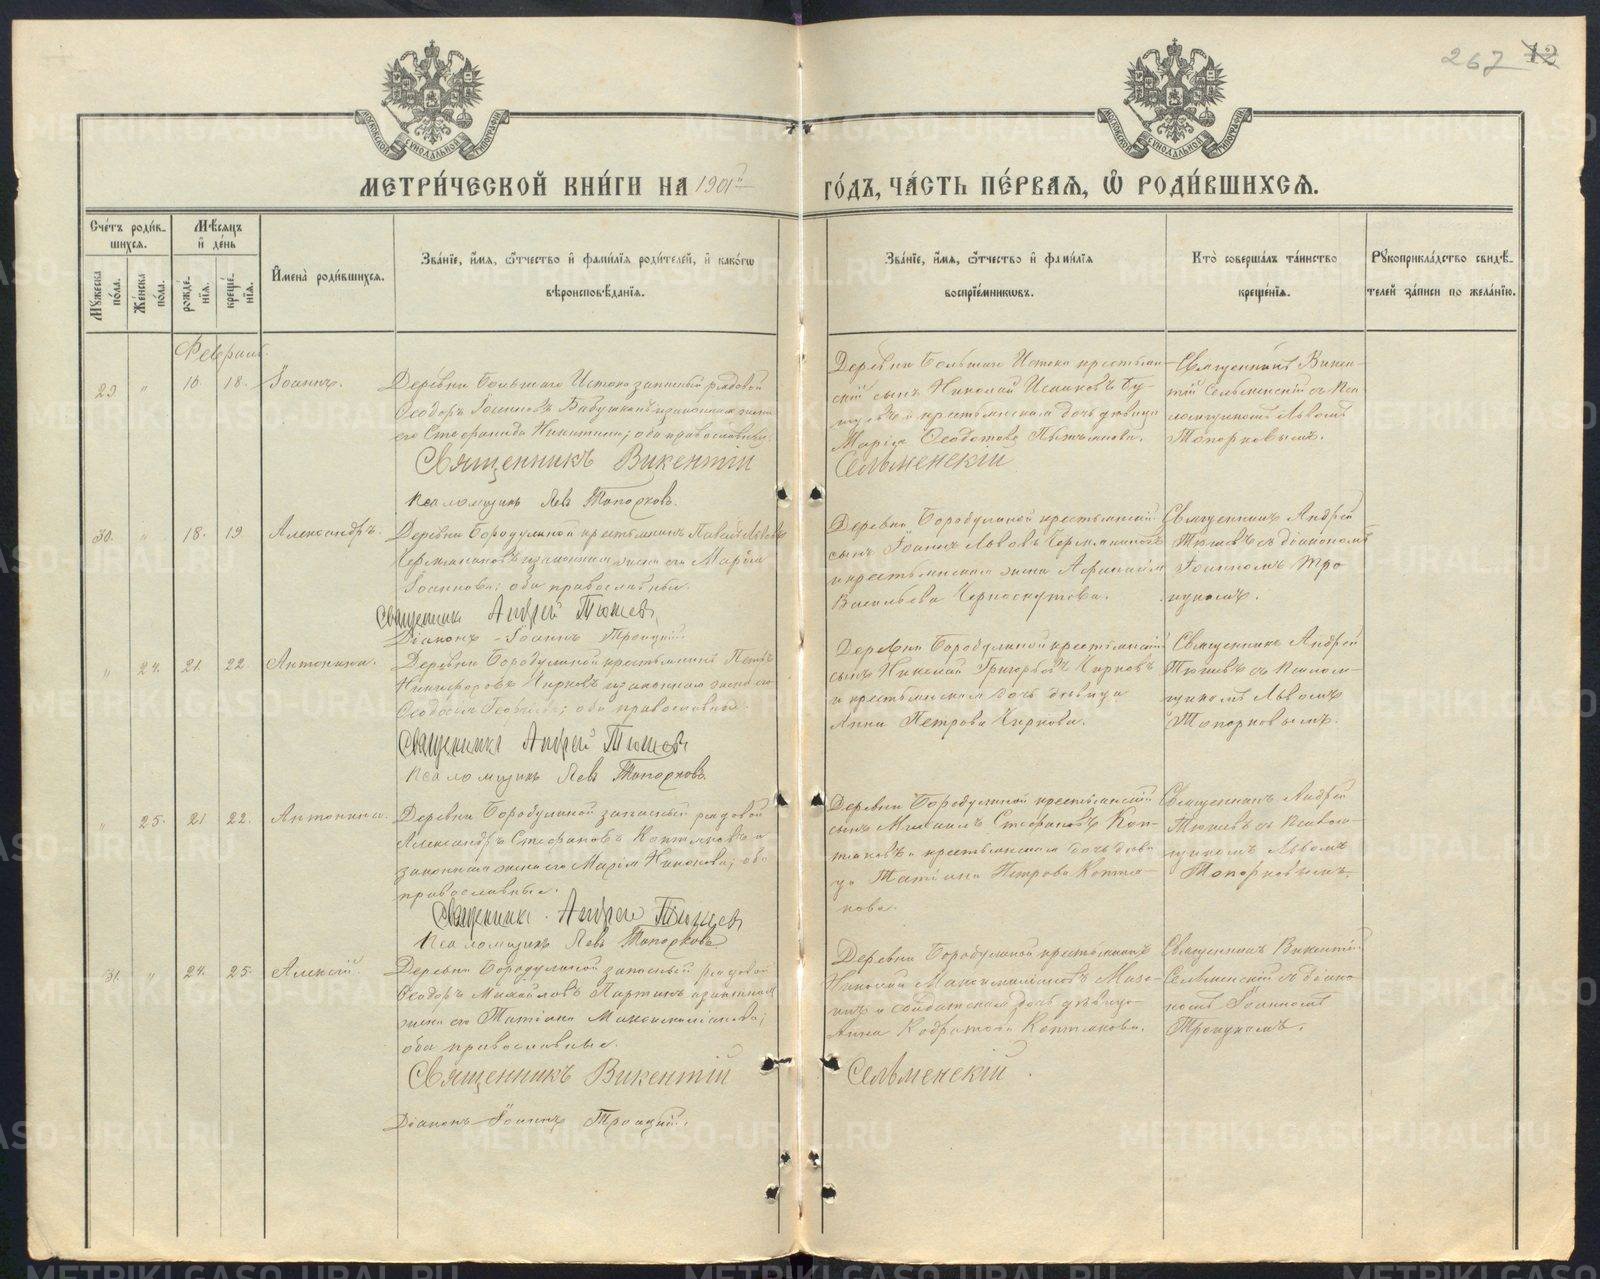 267 12
МОСКОВСКОЙ СѴНОДАЛЬНОЙ ТИПОГРАФІИ
МОСКОВСКОЙ СѴНОДАЛЬНОЙ ТИПОГРАФІИ
МЕТРИ́ЧЕСКОЙ КНИ́ГИ НА 1901й ГО́ДЪ, ЧА́СТЬ ПЕ́РВАЯ, Ѡ РОДИ́ВШИХСЯ.
Сче́тъ роди́вшихся.
Мꙋжеска по́ла.
Же́нска по́ла.
Мѣсяцъ и де́нь
рожде́нїя.
креще́нїя.
Имена̀ роди́вшихся.
Зва́нїе, и́мя, ѻ́тчество и фами́лїя роди́телей, и како́гѡ вѣроисповѣ́данїя.
Зва́нїе, и́мя, ѻ́тчество и фами́лїя воспрїе́мниковъ.
Кто̀ соверша́лъ та́инство креще́нїя.
Рꙋкоприкла́дство свидѣ́телей за́писи по жела́нїю.
Февраль.
29 " 16. 18. Іоаннъ.
Деревни Большаго Истока запасный рядовой
Ѳеодоръ Іоанновъ Бабушкинъ и законная жена
его Стефанида Никитина; оба православные.
Священникъ Викентій Сельменскій
Псаломщикъ Левъ Топорковъ.
Деревни Большаго Истока крестьян-
скій сынъ Николай Исааковъ
и крестьянская дочь девица
Марія Ѳеодотова
Священникъ Викен-
тій Сельменскій съ Пса-
ломщикомъ Львомъ
Топорковымъ.
30. " 18. 19 Александръ.
Деревни Бородулиной крестьянинъ Павелъ Львовъ
и законная жена его Марія
Іоаннова; оба православные.
Священникъ Андрей Тюшевъ
Діаконъ - Іоаннъ Троицкій.
Деревни Бородулиной крестьянскій
сынъ Іоаннъ Львовъ
и крестьянская жена
Васильева Черноскутова.
Священникъ Андрей
Тюшевъ съ діакономъ
Іоанномъ Тро-
ицкимъ.
" 24. 21. 22 Антонина.
Деревни Бородулиной крестьянинъ Петръ
Никифоровъ Чирковъ и законная жена его
Ѳеодосія Георгіева; оба православные.
Священникъ Андрей Тюшевъ
Псаломщикъ Левъ Топорковъ
Деревни Бородулиной крестьянскій
сынъ Николай Григорьевъ Чирковъ
и крестьянская дочь девица
Анна Петрова Чиркова.
Священникъ Андрей
Тюшевъ съ Псалом-
щикомъ Львомъ
Топорковымъ.
" 25. 21 22. Антонина.
Деревни Бородулиной запасный рядовой
Александръ Стефановъ Коптяковъ и
законная жена его Марія Никонова; оба
православные.
Священникъ Андрей Тюшевъ
Псаломщикъ Левъ Топорковъ
Деревни Бородулиной крестьянскій
сынъ Михаилъ Стефановъ Коп-
тяковъ и крестьянская дочь деви-
ца Татіана Петрова Коптя-
кова.
Священникъ Андрей
Тюшевъ съ Псалом-
щикомъ Львомъ
Топорковымъ.
31. " 24. 25. Алексій.
Деревни Бородулиной запасный рядовой
Ѳеодоръ Михайловъ Партинъ и законная
жена его Татіана Максимиліанова;
оба православные.
Священникъ Викентій Сельменскій
Діаконъ Іоаннъ Троицкій.
Деревни Бородулиной крестьянинъ
Николай Максимиліановъ
и солдатская дочь девица
Анна Кодратова Коптякова.
Священникъ Викентій
Сельменскій съ діако-
номъ Іоанномъ
Троицкимъ.
METRIKI.GASO-URAL.RU